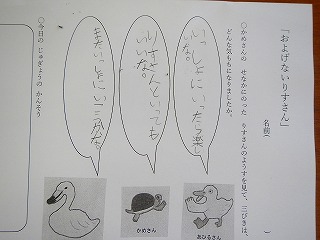 「およげないりすさん」
名前(　　　)
○かめさんの せなかにのった りすさんのようすを見て、三びきは、
どんな気もちになりましたか。
いっしょにいったら楽し
いな。
りすさんといっても
いいな。
またいっしょにいこうかな
あひるさん
かめさん
○今日の じゅぎょうの かんそう